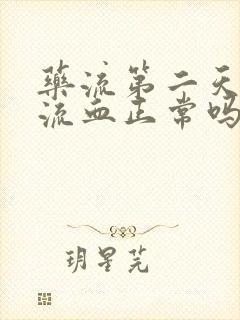 药流第二天
流血正常吗
玥星芫